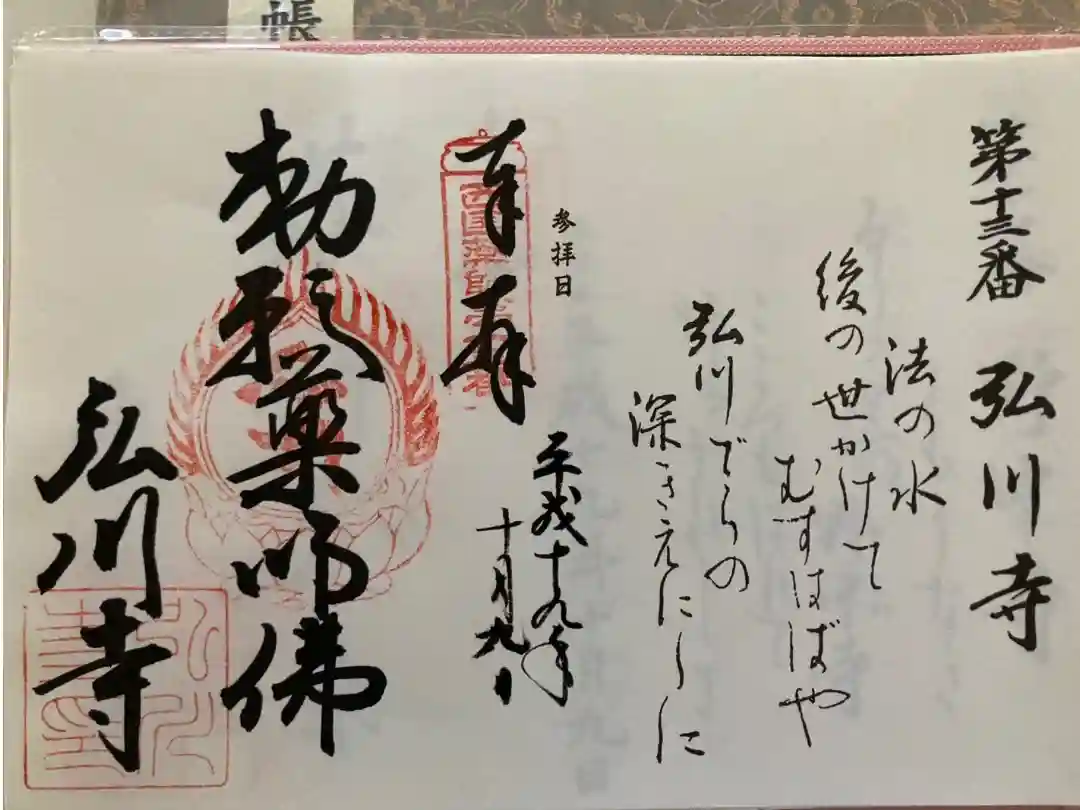 帳
第十三番 弘川寺
法の水
後の世かけて
むすはばや
弘川でらの
深きえにしに
参拝日
平成十九年
十月九日
奉拝
西国薬師
勅願薬師佛
弘川寺